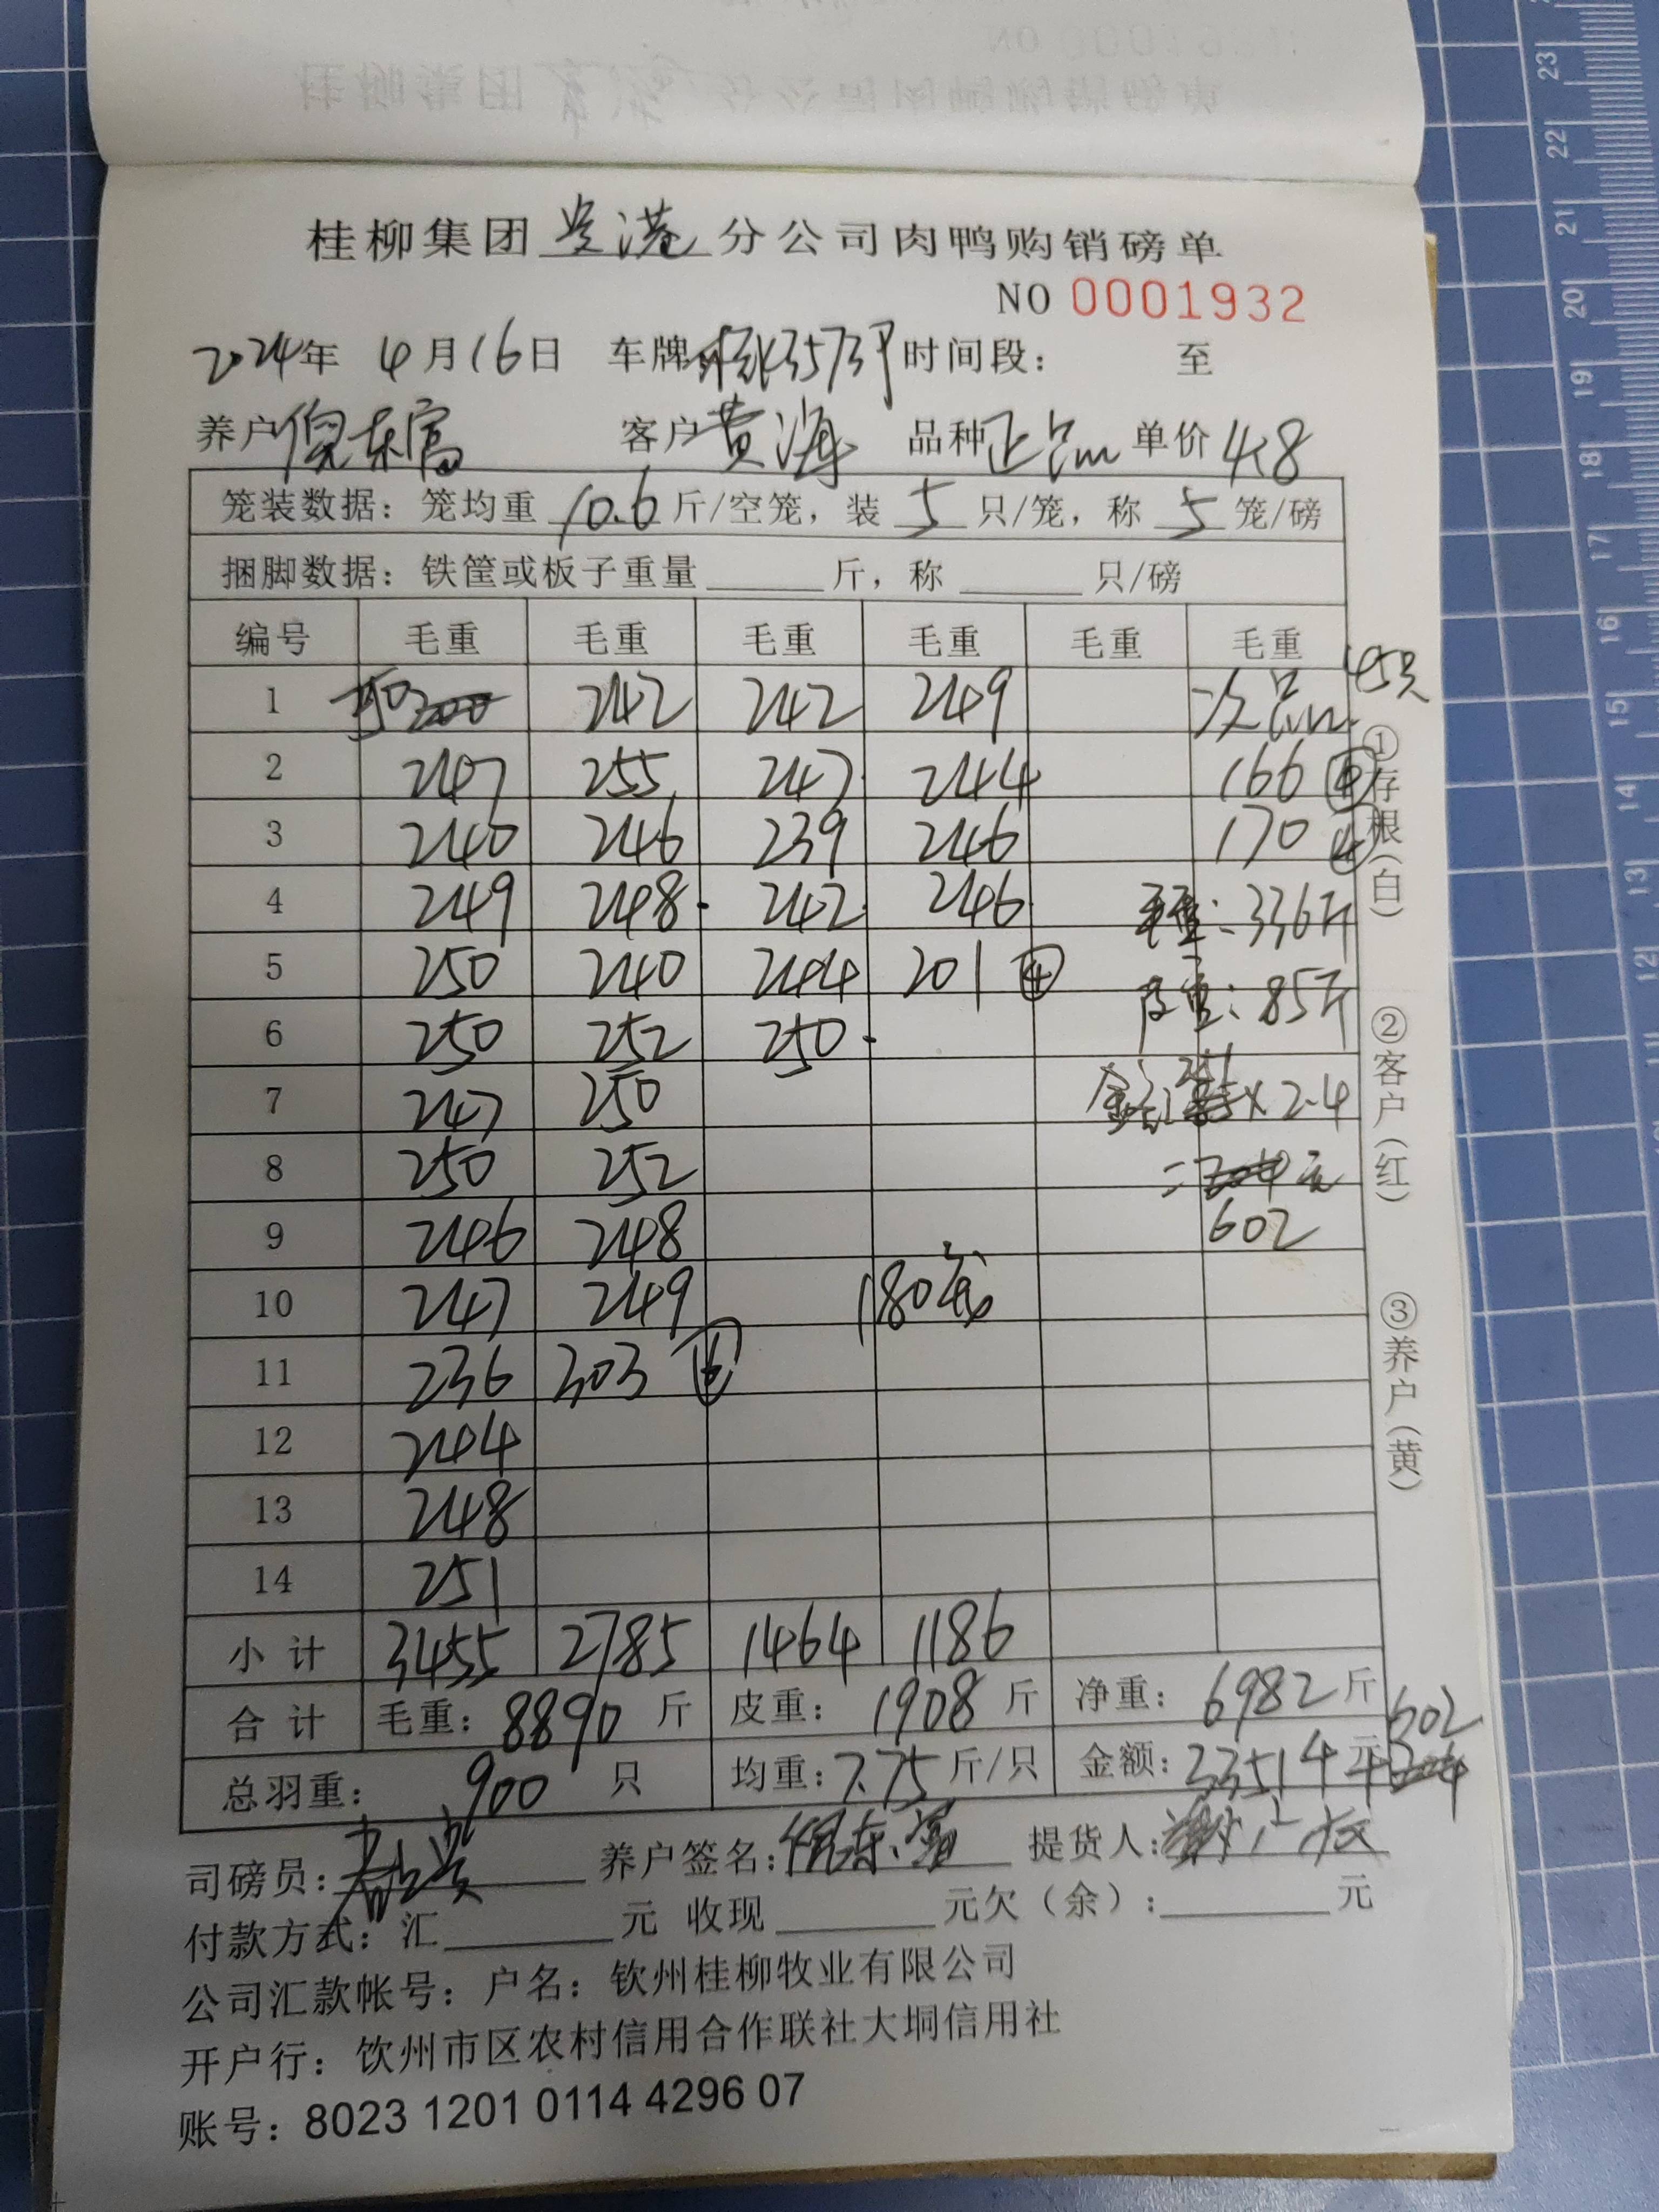 桂柳集团贵港分公司肉鸭购销磅单
NO 0001932
2024年 4月16日 车牌 3573 时间段: 至
养户倪东富 客户黄海 品种正品 单价4.8
笼装数据: 笼均重 10.6 斤/空笼, 装 5 只/笼, 称 5 笼/磅
捆脚数据: 铁筐或板子重量 斤, 称 只/磅
编号 毛重 毛重 毛重 毛重 毛重 毛重
45只
1 250 242 242 249 次品
2 247 255 247 244 166 ④
3 240 246 239 246 170 ④
4 249 248 242 246 毛重: 336斤
5 250 240 244 201 ④ 皮重: 85斤
6 250 252 250
7 247 250 金额: 251×2.4
8 250 252 = 元
9 246 248 602
10 247 249 180笼
11 236 303 ⑥
12 244
13 248
14 251
小计 3455 2785 1464 1186
合计 毛重: 8890 斤 皮重: 1908 斤 净重: 6982斤
总羽重: 900 只 均重: 7.75斤/只 金额: 33514元+602
司磅员: 养户签名: 倪东富 提货人:
付款方式: 汇 元 收现 元欠(余): 元
公司汇款帐号: 户名: 钦州桂柳牧业有限公司
开户行: 钦州市区农村信用合作联社大垌信用社
账号: 8023 1201 0114 4296 07
①存根(白)
②客户(红)
③养户(黄)
23
22
21
20
19
18
17
16
15
14
13
12
11